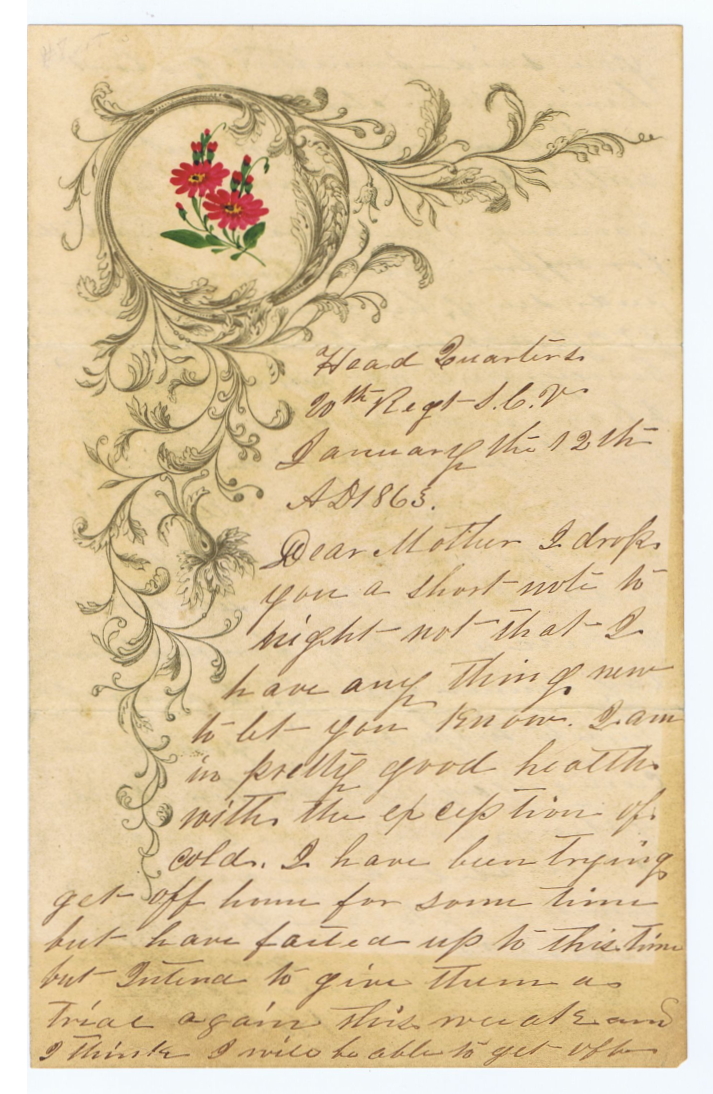 Head Quarters
20th Regt S.C.V
January the 12th
AD 1863.
Dear Mother I drop
you a short note to
night not that I
have any thing new
to let you know. I am
in pretty good health
with the exception of
cold. I have been trying
get off home for some time
but have failed up to this time
but Intend to give them a
trial again this weeak and
I think I will be able to get off